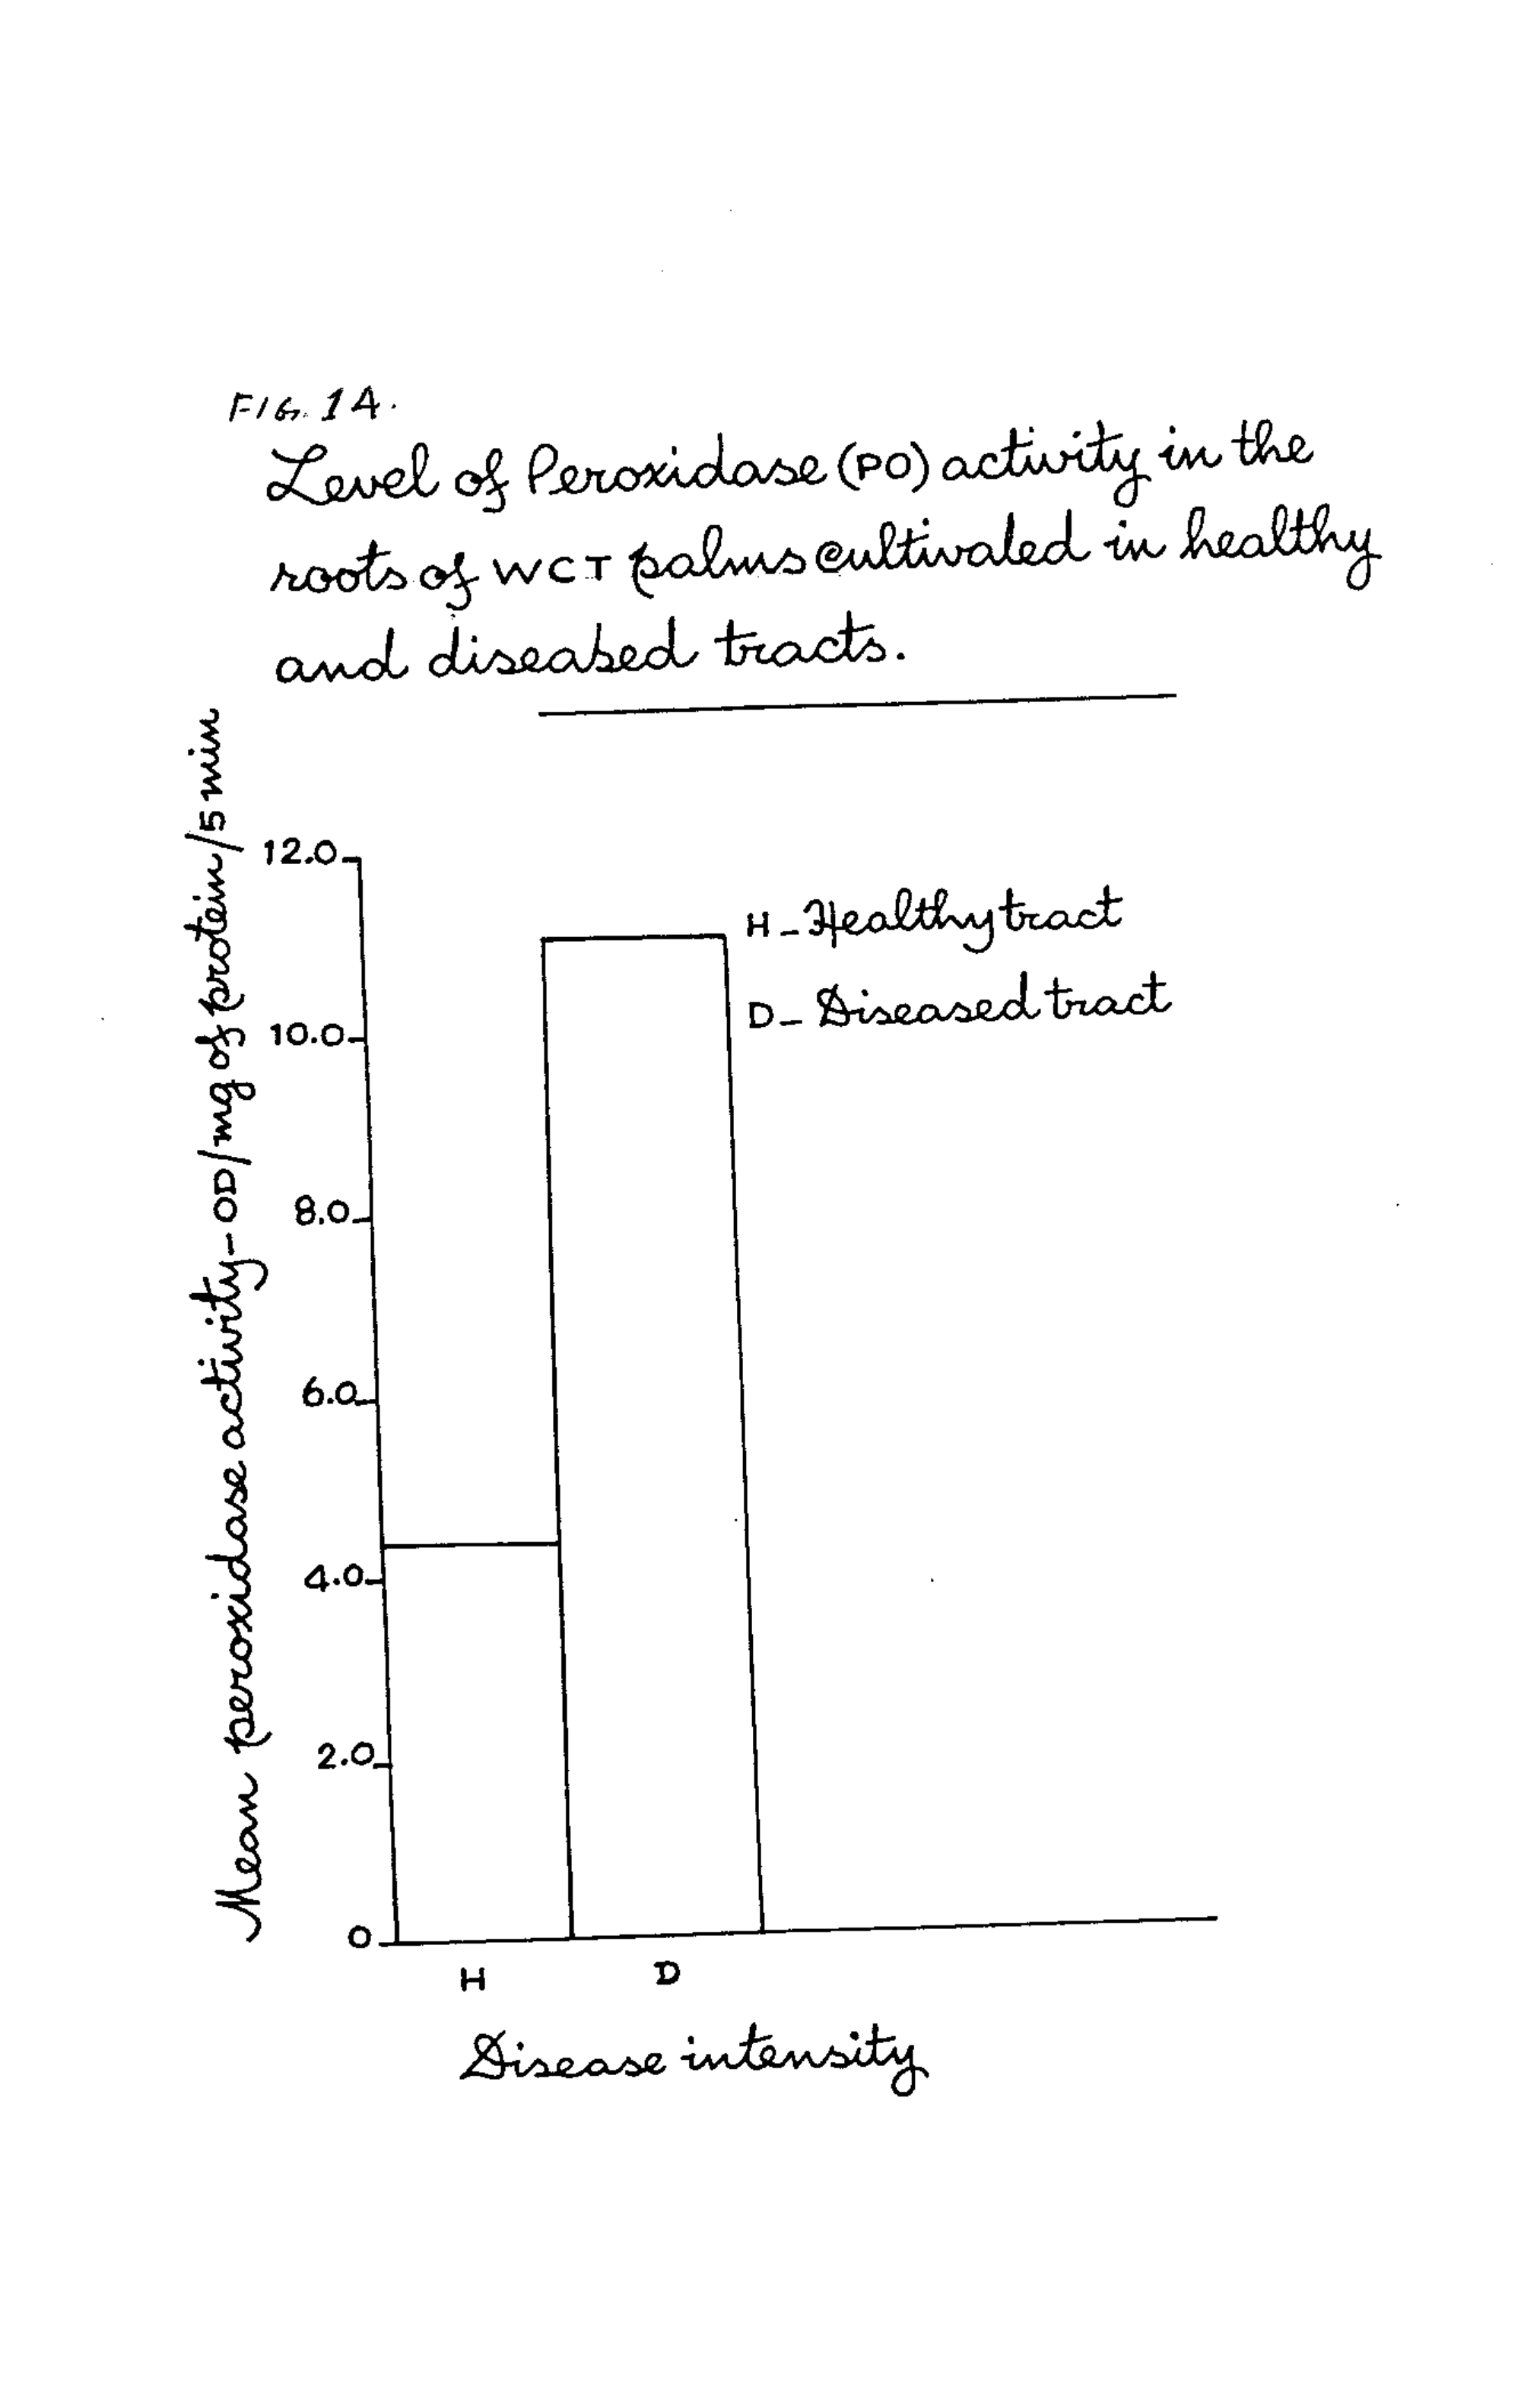 FIG. 14.
Level of Peroxidase (PO) activity in the
roots of WCT palms cultivated in healthy
and diseased tracts.
Mean peroxidase activity - OD/mg of protein/5 min
12.0
10.0
8.0
6.0
4.0
2.0
0
H - Healthy tract
D - Diseased tract
H D
Disease intensity